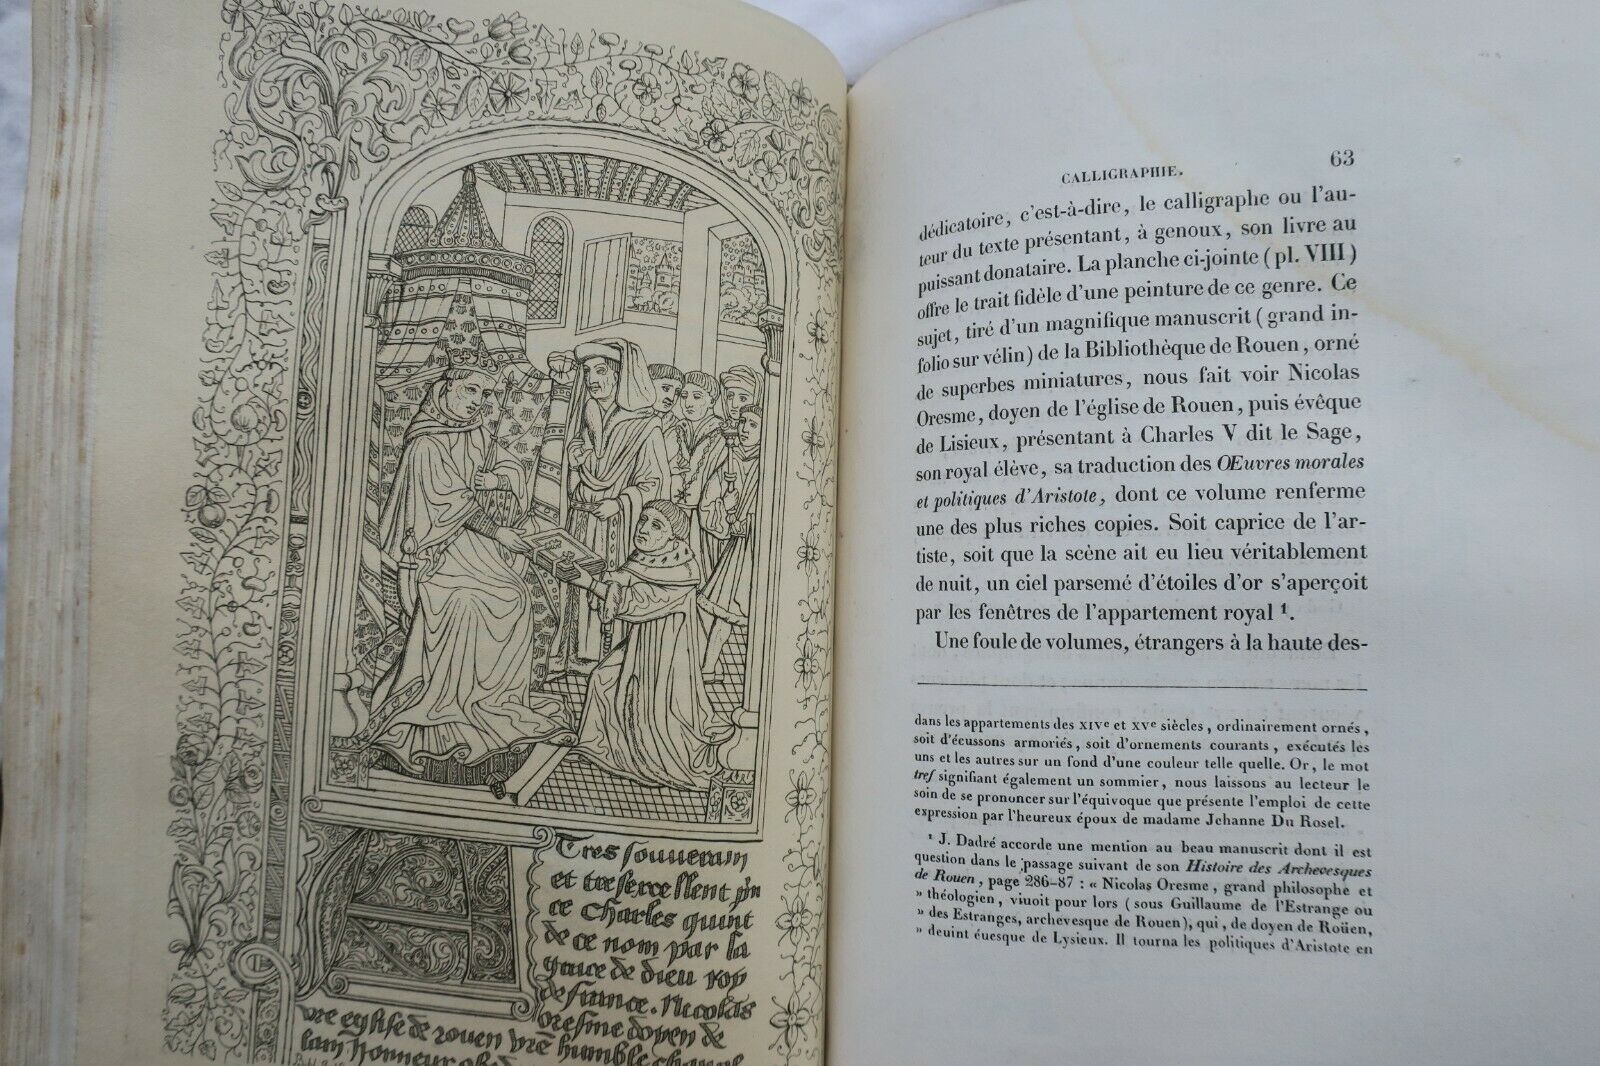 Tres souverain
et tresexcellent prin
ce Charles quint
de ce nom par la
grace de dieu roy
de france. Nicolas
oresme doyen de
vre eglise de rouen vre humble
CALLIGRAPHIE.
63
dédicatoire, c'est-à-dire, le calligraphe ou l'au-
teur du texte présentant, à genoux, son livre au
puissant donataire. La planche ci-jointe (pl. VIII)
offre le trait fidèle d'une peinture de ce genre. Ce
sujet, tiré d'un magnifique manuscrit (grand in-
folio sur vélin) de la Bibliothèque de Rouen, orné
de superbes miniatures, nous fait voir Nicolas
Oresme, doyen de l'église de Rouen, puis évêque
de Lisieux, présentant à Charles V dit le Sage,
son royal élève, sa traduction des OEuvres morales
et politiques d'Aristote, dont ce volume renferme
une des plus riches copies. Soit caprice de l'ar-
tiste, soit que la scène ait eu lieu véritablement
de nuit, un ciel parsemé d'étoiles d'or s'aperçoit
par les fenêtres de l'appartement royal ¹.
Une foule de volumes, étrangers à la haute des-
dans les appartements des XIVe et XVe siècles, ordinairement ornés,
soit d'écussons armoriés, soit d'ornements courants, exécutés les
uns et les autres sur un fond d'une couleur telle quelle. Or, le mot
tref signifiant également un sommier, nous laissons au lecteur le
soin de se prononcer sur l'équivoque que présente l'emploi de cette
expression par l'heureux époux de madame Jehanne Du Rosel.
¹ J. Dadré accorde une mention au beau manuscrit dont il est
question dans le passage suivant de son Histoire des Archevesques
de Rouen, page 286-87 : « Nicolas Oresme, grand philosophe et
» théologien, viuoit pour lors (sous Guillaume de l'Estrange ou
» des Estranges, archevesque de Rouen), qui, de doyen de Roüen,
» deuint éuesque de Lysieux. Il tourna les politiques d'Aristote en